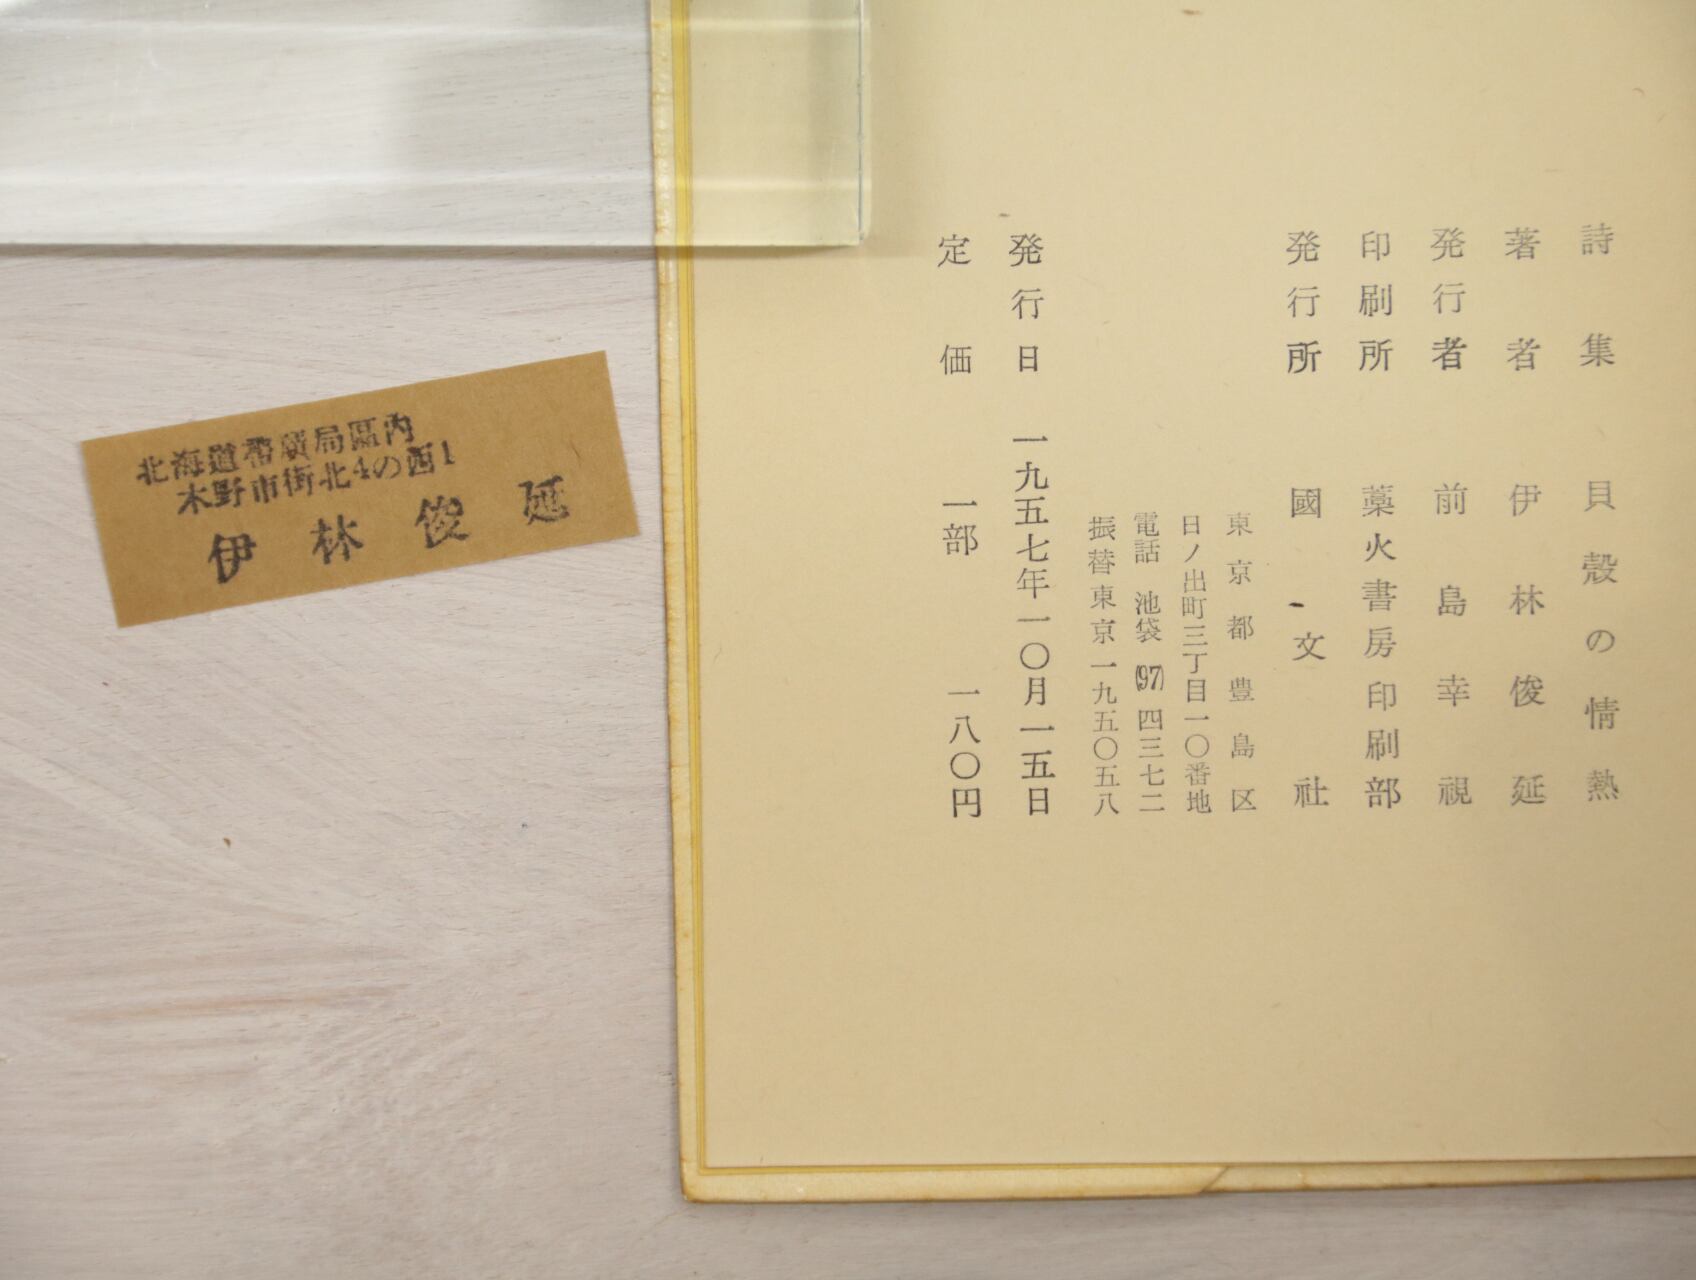 詩集 貝殻の情熱
著者 伊林俊延
発行者 前島幸視
印刷所 藁火書房印刷部
発行所 國文社
東京都豊島区
日ノ出町三丁目一〇番地
電話 池袋 (97) 四三七二
振替東京一九五〇五八
発行日 一九五七年一〇月一五日
定価 一部 一八〇円
北海道帯廣局區内
木野市街北4の西1
伊林俊延